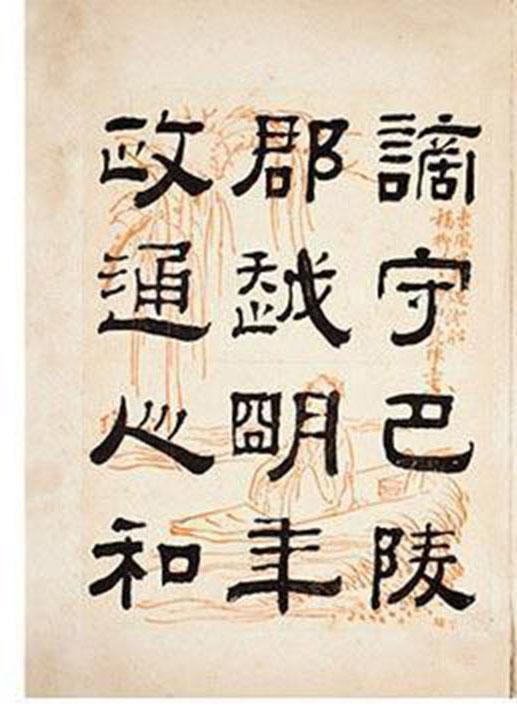 謫守巴陵
郡越明年
政通人和